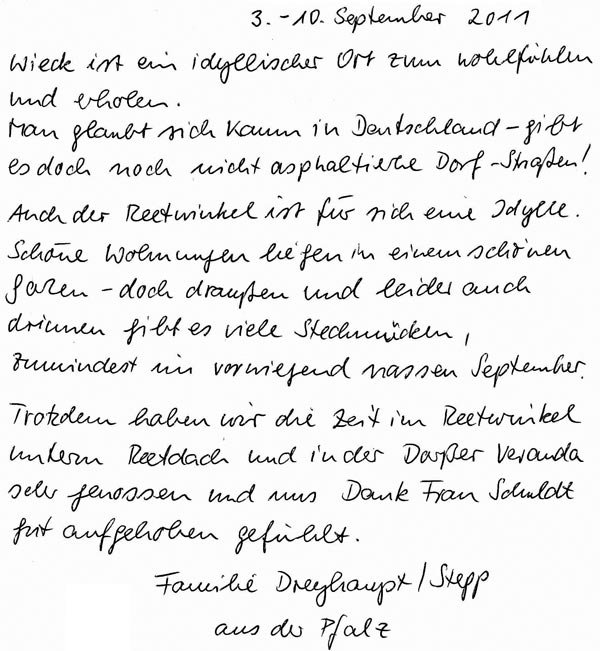 3.-10. September 2011
Wieck ist ein idyllischer Ort zum wohlfühlen
und erholen.
Man glaubt sich kaum in Deutschland - gibt
es doch noch nicht asphaltierte Dorf-Straßen!
Auch der Reetwinkel ist für sich eine Idylle.
Schöne Wohnungen liegen in einem schönen
Garten - doch draußen und leider auch
drinnen gibt es viele Stechmücken,
zumindest im vorwiegend nassen September.
Trotzdem haben wir die Zeit im Reetwinkel
unterm Reetdach und in der Darßer Veranda
sehr genossen und uns Dank Frau Schuldt
gut aufgehoben gefühlt.
Familie Dreyhaupt/Stepp
aus der Pfalz